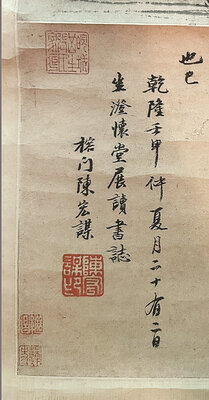 也已
乾隆壬申仲夏月二十有二日
坐澄懷堂展讀書誌
榕門陳宏謀
陳宏謀印